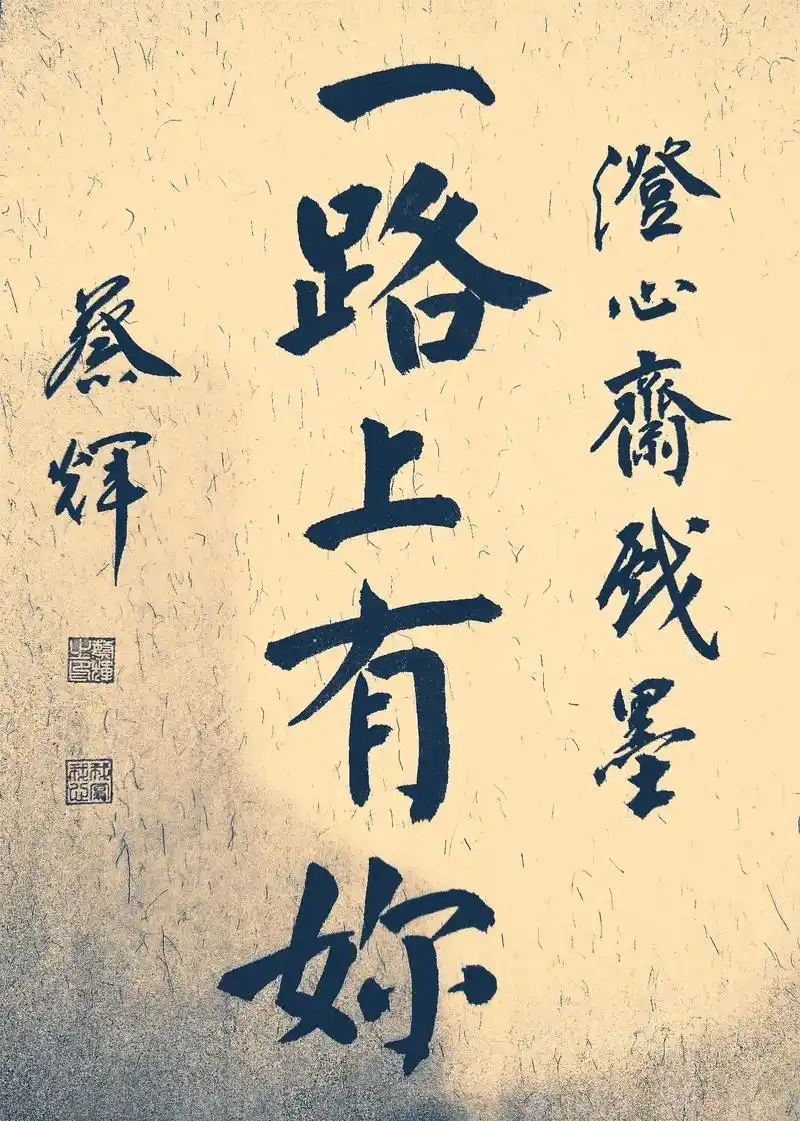 澄心齋戲墨
一路上有妳
蔡輝